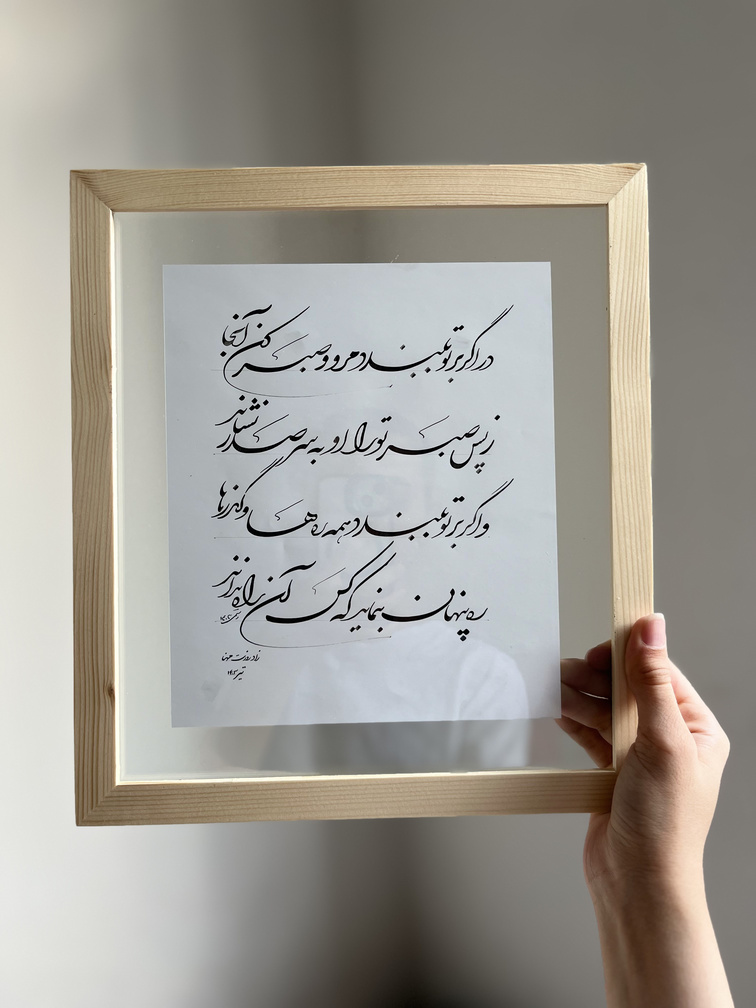 در اگر بر تو ببندد مرو و صبر کن آنجا
ز پس صبر تو را او به سر صدر نشاند
و اگر بر تو ببندد همه ره‌ها و گذرها
ره پنهان بنماید که کس آن راه نداند
زادروزت مهنا
تیر ۱۴۰۲